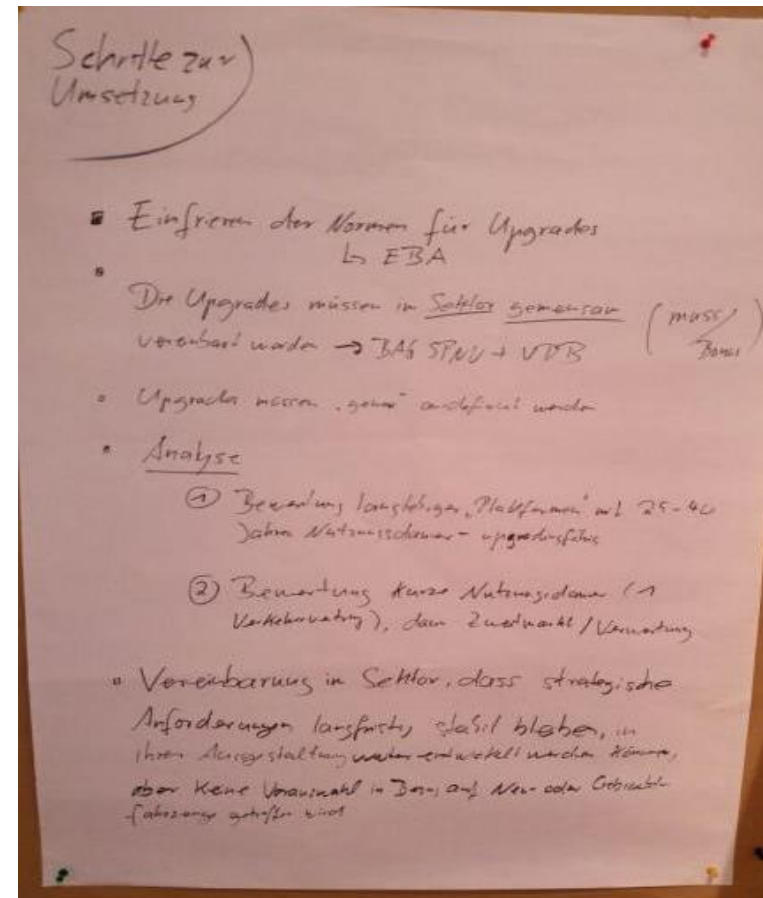 Schritte zur
Umsetzung
Einfrieren der Normen für Upgrades
↳ EBA
Die Upgrades müssen im Sektor gemeinsam (muss/
vereinbart werden → BAG SPNV + VDB Bonus)
Upgrades müssen „genau“ werden
Analyse
① Bewertung langlebiger „Plattformen“ mit 25-40
Jahren Nutzungsdauer - upgradingfähig
② Bewertung kurze Nutzungsdauer (1
Verkehrsvertrag), dann Zweitmarkt / Verwertung
Vereinbarung im Sektor, dass strategische
Anforderungen langfristig stabil bleiben, in
ihren Ausgestaltung weiterentwickelt werden können,
aber keine Vorauswahl in Bezug auf Neu- oder Gebraucht-
fahrzeuge getroffen wird